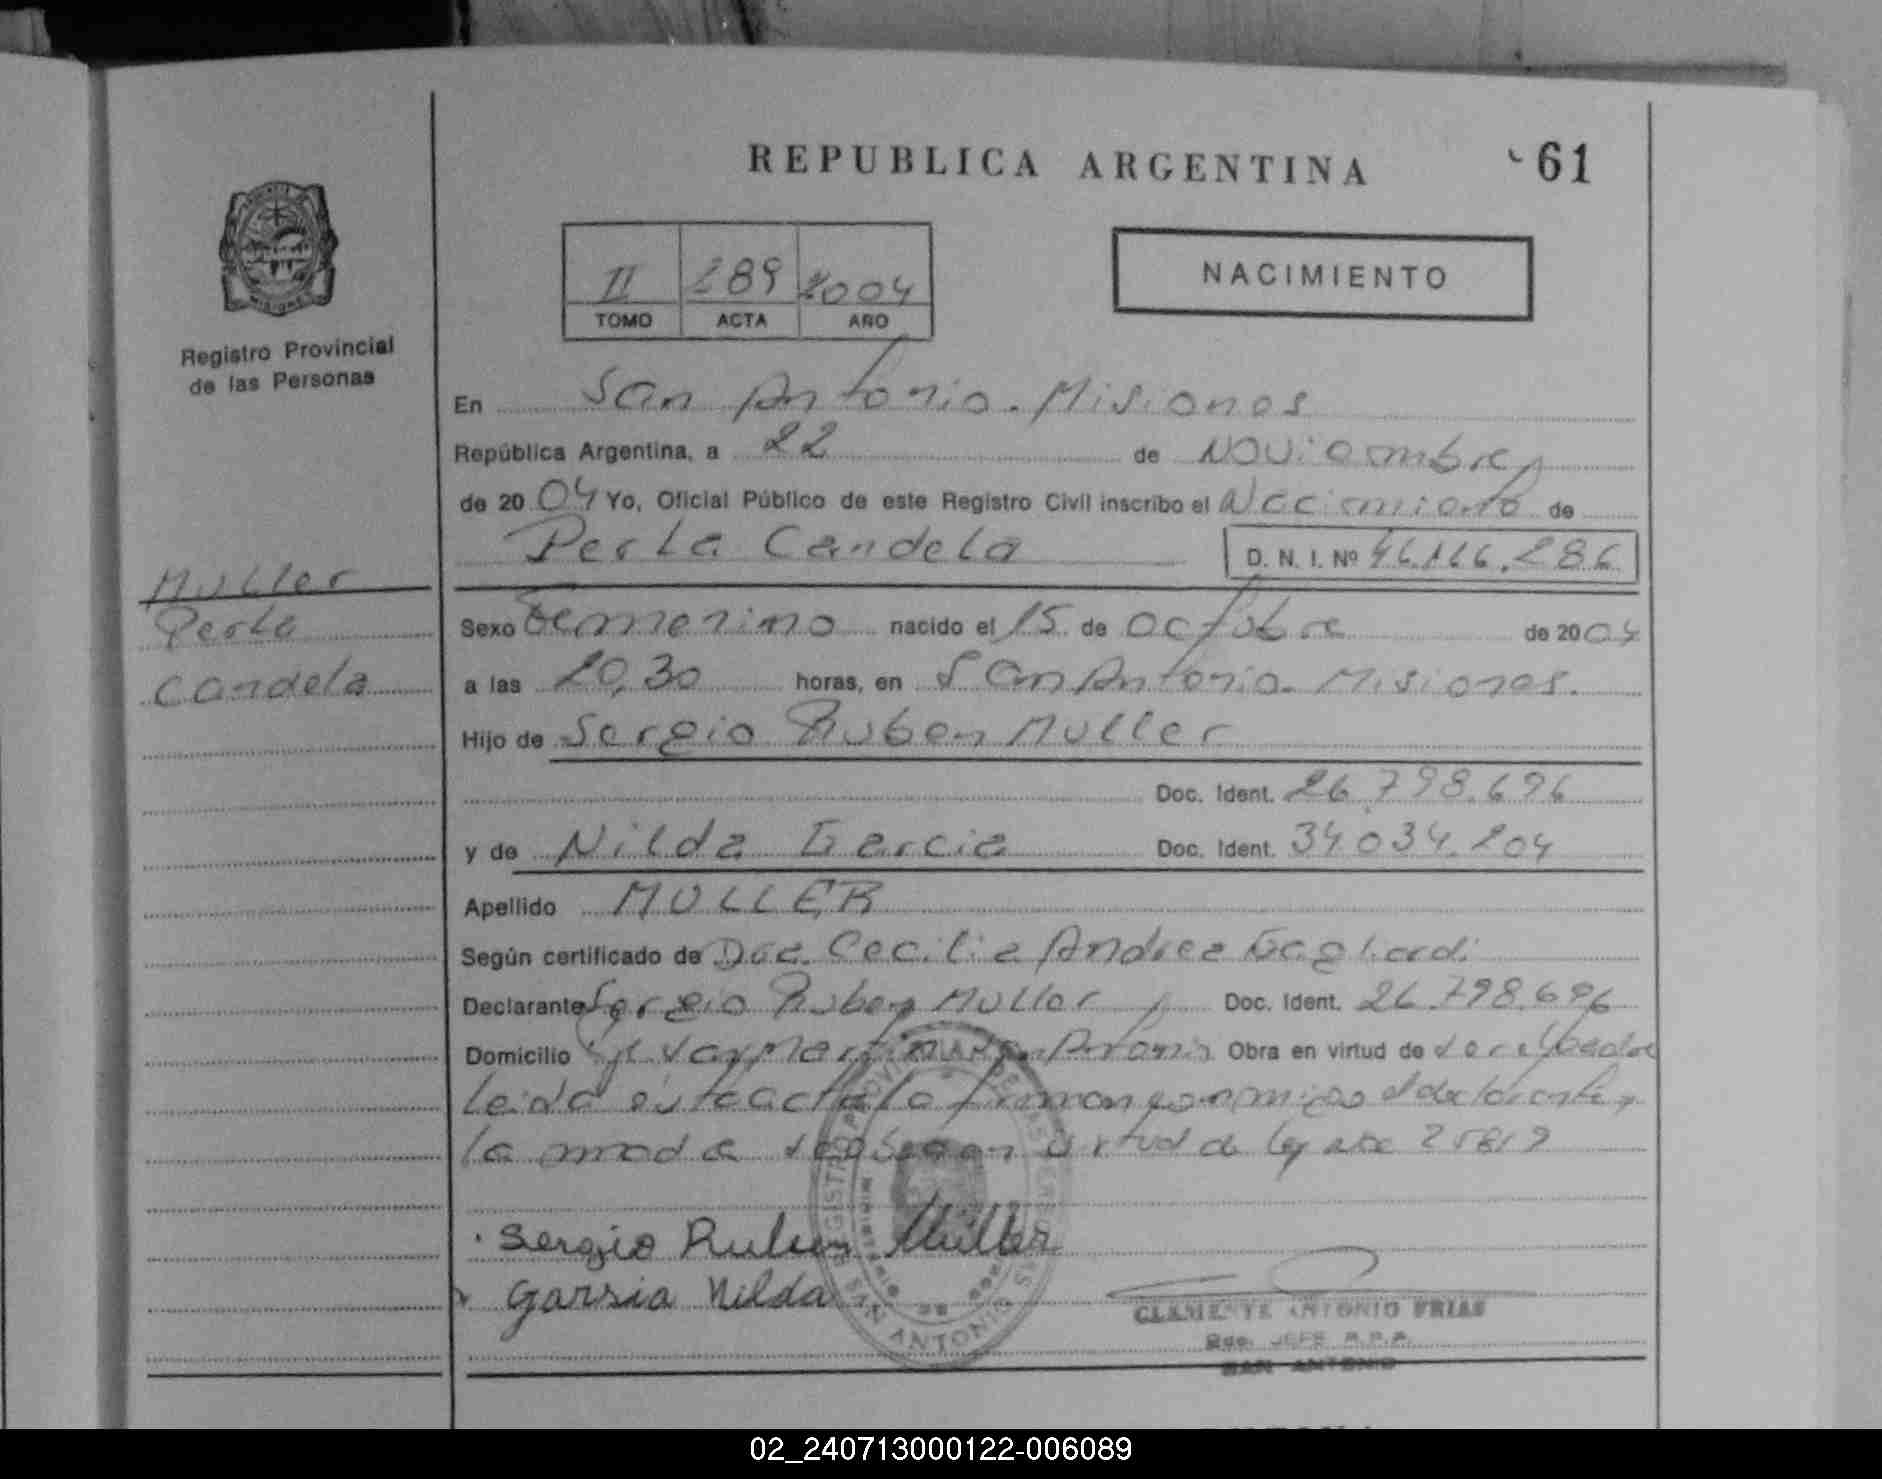 REPUBLICA ARGENTINA
61
II 289 2004
TOMO ACTA AÑO
NACIMIENTO
MISIONES
Registro Provincial
de las Personas
En San Antonio. Misiones
República Argentina, a 22 de Noviembre
de 2004 Yo, Oficial Público de este Registro Civil inscribo el Nacimiento de
Perla Candela
D. N. I. Nº 46.166.286
Muller
Perla
Candela
Sexo Femenino nacido el 15 de octubre de 2004
a las 20,30 horas, en San Antonio. Misiones.
Hijo de Sergio Ruben Muller
Doc. Ident. 26.798.696
y de Nilda Garcia Doc. Ident. 34.034.204
Apellido MULLER
Según certificado de Dra. Cecilia Andrea Gagliardi
Declarante Sergio Ruben Muller Doc. Ident. 26.798.696
Domicilio San Antonio Obra en virtud de
Leida el acta la firman conmigo el declarante y
la madre virtud de ley 25819
Sergio Ruben Müller
Garsia Nilda
SAN ANTONIO
CLEMENTE ANTONIO FRIAS
JEFE R.P.P.
SAN ANTONIO
02_240713000122-006089